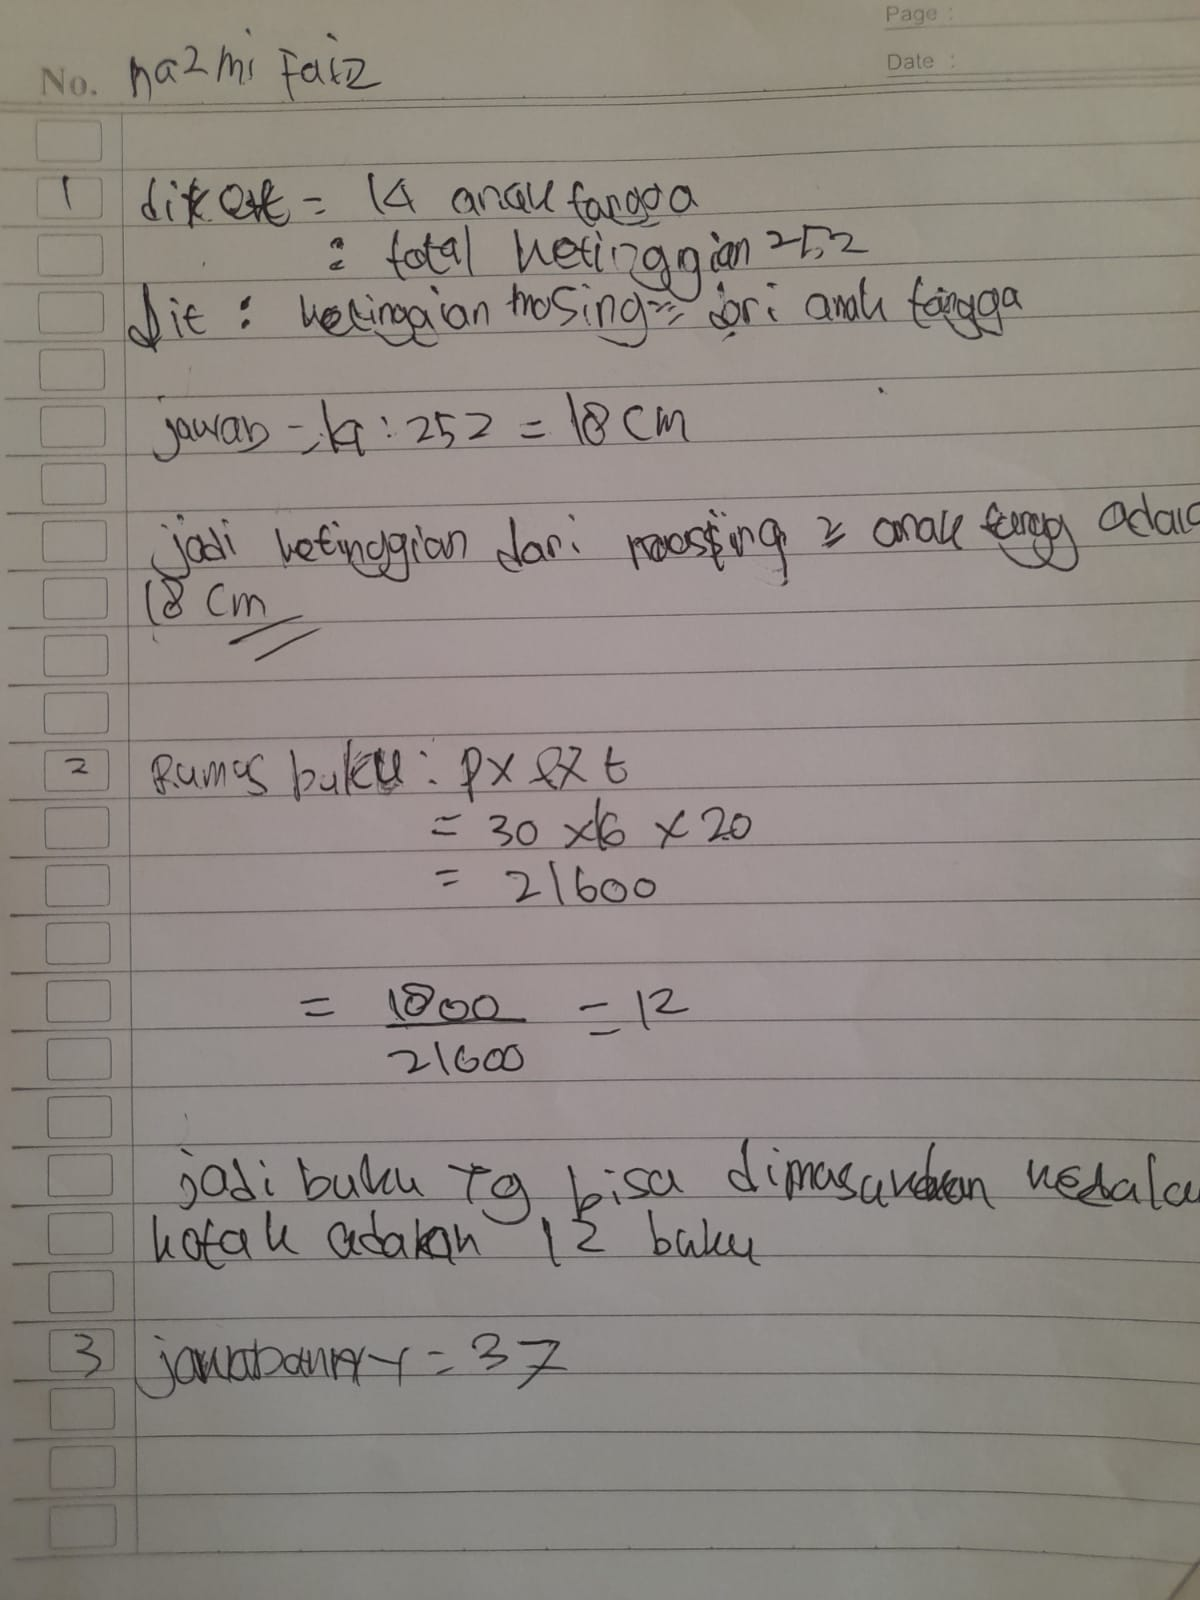 Page :
Date :
No. nazmi Faiz
1 diket = 14 anak tangga
: total ketinggian 252
Dit : ketinggian masing² dari anak tangga
jawab = 14 : 252 = 18 cm
jadi ketinggian dari masing 2 anak tangg adala
18 cm
2 Rumus buku : p x l x t
= 30 x 6 x 20
= 21600
= 1800 = 12
21600
jadi buku yg bisa dimasukkan kedala
kotak adalah 12 buku
3 jawabannyY = 37